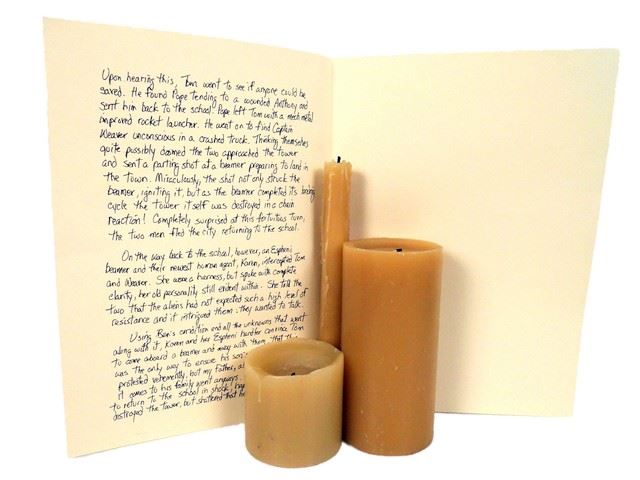 Upon hearing this, Tom went to see if anyone could be
saved. He found Pope tending to a wounded Anthony and
sent him back to the school. Pope left Tom with a mech metal
improved rocket launcher. He went on to find Captain
Weaver unconscious in a crashed truck. Thinking themselves
quite possibly doomed the two approached the tower
and sent a parting shot at a beamer preparing to land in
the town. Miraculously, the shot not only struck the
beamer, igniting it, but as the beamer completed its
cycle the tower itself was destroyed in a chain
reaction! Completely surprised at this fortuitous turn,
the two men fled the city returning to the school.
On the way back to the school, however, an Espheni
beamer and their newest human agent, Karen, intercepted Tom
and Weaver. She wore a harness, but spoke with complete
clarity, her old personality still evident within. She told the
two that the aliens had not expected such a high level of
resistance and it intrigued them: they wanted to talk.
Using Ben's condition and all the unknowns that went
along with it, Karen and her Espheni handler convince Tom
to come aboard a beamer and away with them, that this
was the only way to ensure his
protested vehemently, but my father, as
it comes to his family went anyways.
to return to the school in shock!
destroyed the tower, but shattered that